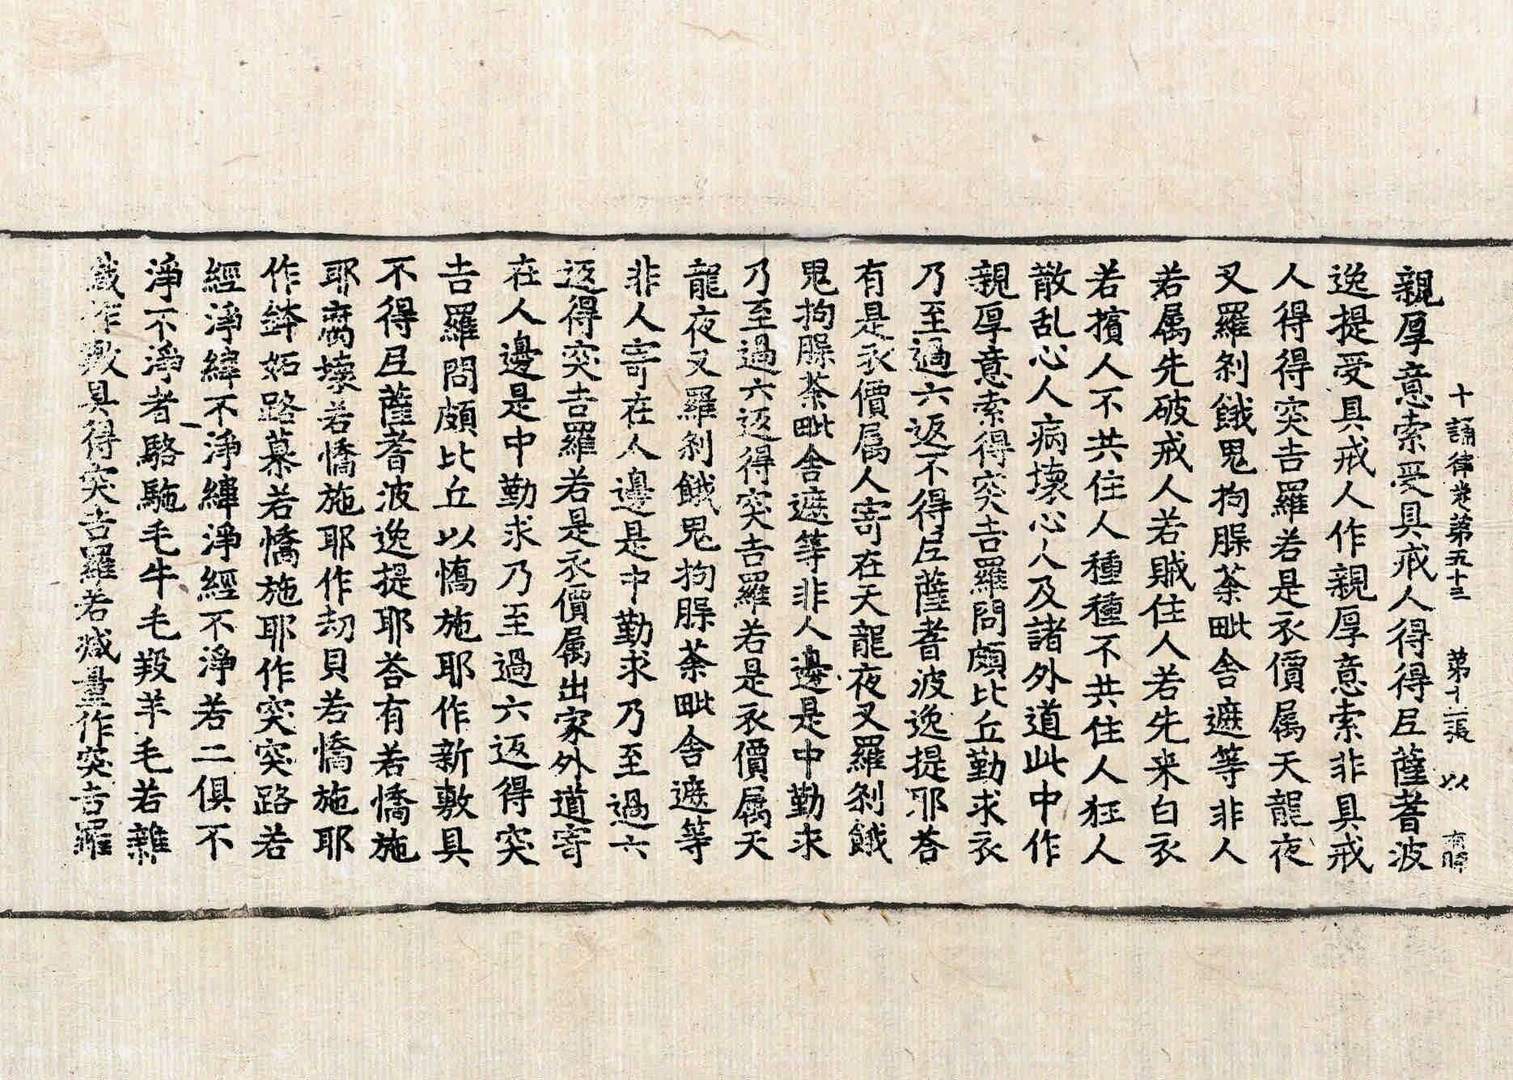 十誦律卷第五十三　第十二張　以
親厚意索受具戒人得得尼薩耆波
逸提受具戒人作親厚意索非具戒
人得得突吉羅若是衣價属天龍夜
叉羅剎餓鬼拘脲荼毗舍遮等非人
若属先破戒人若賊住人若先来白衣
若擯人不共住人種種不共住人狂人
散乱心人病壞心人及諸外道此中作
親厚意索得突吉羅問頗比丘勤求衣
乃至過六返不得尼薩耆波逸提耶荅
有是衣價属人寄在天龍夜叉羅剎餓
鬼拘脲荼毗舍遮等非人邊是中勤求
乃至過六返得突吉羅若是衣價属天
龍夜叉羅剎餓鬼拘脲荼毗舍遮等
非人寄在人邊是中勤求乃至過六
返得突吉羅若是衣價属出家外道寄
在人邊是中勤求乃至過六返得突
吉羅問頗比丘以憍施耶作新敷具
不得尼薩耆波逸提耶荅有若憍施
耶腐壞若憍施耶作劫貝若憍施耶
作鉢妬路慕若憍施耶作突突路若
經淨緯不淨緯淨經不淨若二俱不
淨不淨者駱駞毛牛毛羖羊毛若雜
作敷具得突吉羅若減量作突吉羅